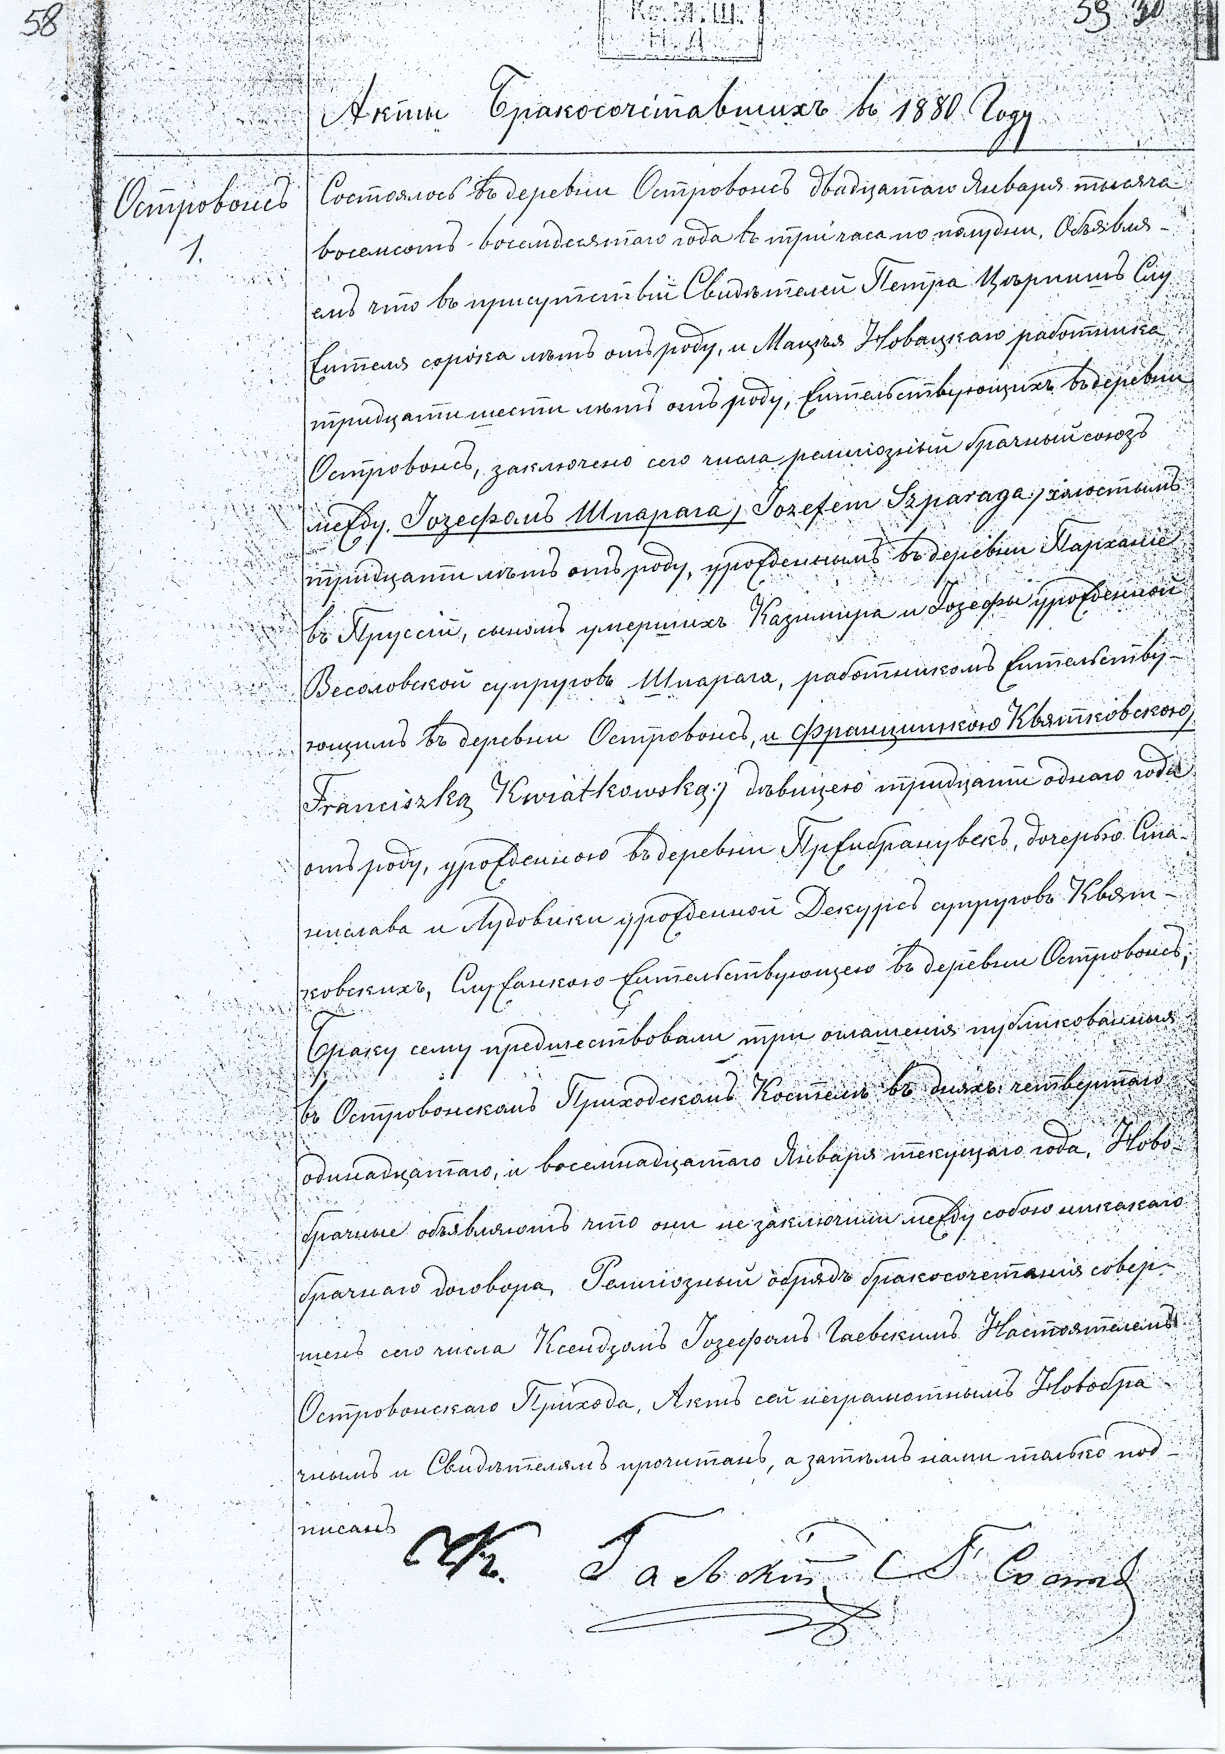 58
Кс. М. Ш.
Н. А.
59 30
Акты Бракосочетавшихъ въ 1880 Году
Островонсъ
1.
Состоялось въ деревни Островонсъ двадцатаго Января тысяча
восемсотъ восемдесятаго года въ три часа по полудни. Объявля-
емъ что въ присутствіи Свидѣтелей Петра Слу
жителя сорока лѣтъ отъ роду, и Мацѣя Новацкаго работника
тридцати шести лѣтъ отъ роду, жительствующихъ въ деревни
Островонсъ, заключено сего числа религіозный брачный союзъ
между Іозефомъ Шпарага, Jozefem Szparaga) холостымъ
тридцати лѣтъ отъ роду, урожденнымъ въ деревни Пархане
въ Пруссіи, сыномъ умершихъ Казимира и Іозефы урожденной
Весоловской супруговъ Шпарага, работникомъ жительству-
ющимъ въ деревни Островонсъ, и Францишкою Квятковскою,
Franciszką Kwiatkowską) дѣвицею тридцати однаго года
отъ роду, урожденною въ деревни Пржибранувекъ, дочерью Ста-
нислава и Лудовики урожденной Декурсъ супруговъ Квят-
ковскихъ, Служанкою жительствующею въ деревни Островонсъ,
Браку сему предшествовали три оглашенія публикованныя
въ Островонскомъ Приходскомъ Костелѣ въ дняхъ: четвертаго
одинадцатаго, и восемнадцатаго Января текущаго года, Ново-
брачные объявляютъ что они не заключили между собою никакаго
брачнаго договора, Религіозный обрядъ бракосочетанія совер-
шенъ сего числа Ксендзомъ Іозефомъ Гаевскимъ Настоятелемъ
Островонскаго Прихода, Актъ сей неграмотнымъ Новобра-
чнымъ и Свидѣтелямъ прочитанъ, а затѣмъ нами только под-
писанъ